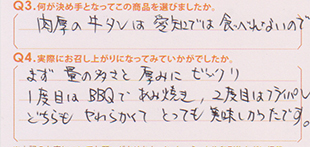 Q3.何が決め手となってこの商品を選びましたか。
肉厚の牛タンは愛知では食べれないので
Q4.実際にお召し上がりになってみていかがでしたか。
まず量の多さと厚みにビックリ
1度目はBBQであみ焼き、2度目はフライパン
どちらもやわらかくてとっても美味しかったです。